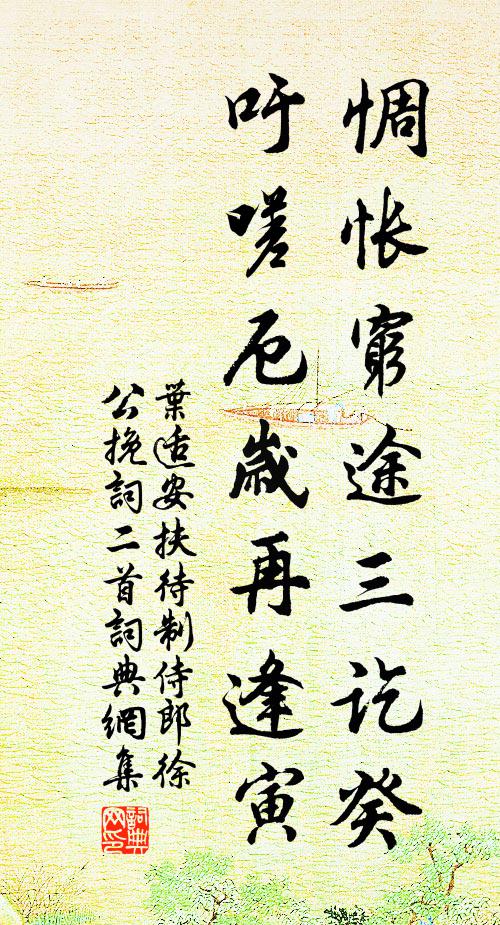 惆悵窮途三訖癸
吁嗟厄歲再逢寅
葉適安扶待制侍郎徐
公挽詞二首詞典網集
詞典
网印